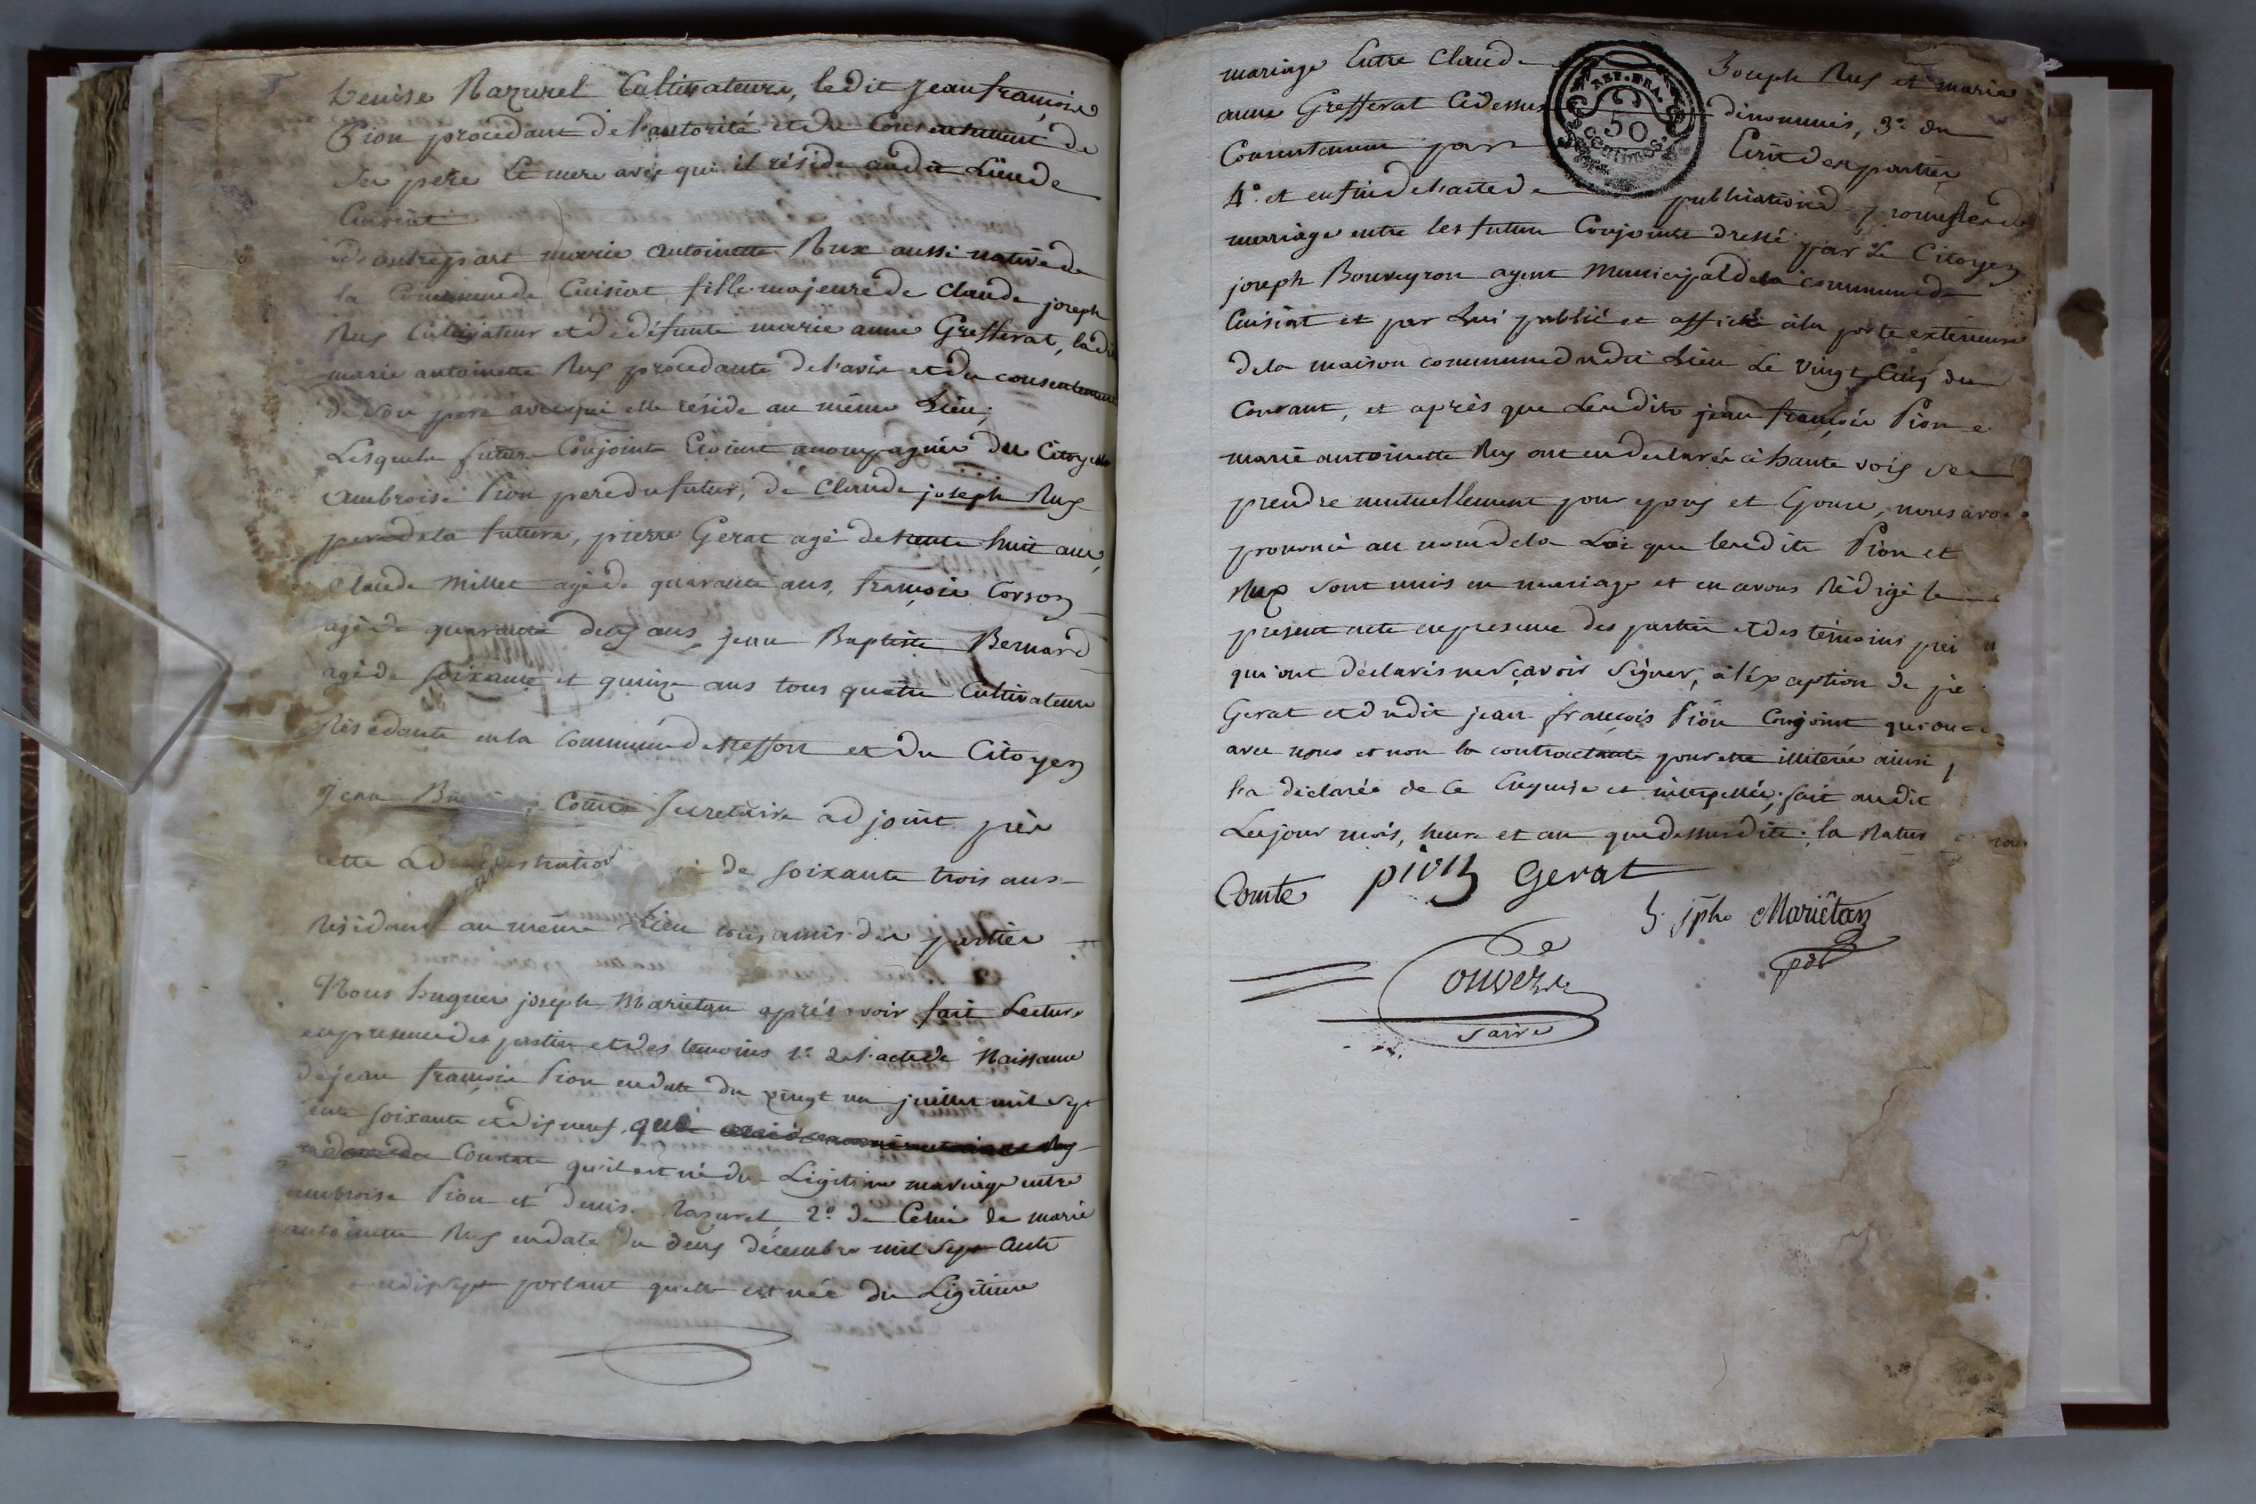 Denise Razurel Cultivateurs, ledit Jean françois
Pion procedant de l'autorité et du Consentement de
Ses pere Et mere avec qui il réside audit Lieu de
Cuisiat
d'autre part marie antoinette Rux aussi native de
la Commune de Cuisiat fille majeure de Claude joseph
Rux Cultivateur et de défunte marie anne Grefferat, ladi
marie antoinette Rux procedante de l'avis et du consentement
de son pere avec qui elle réside au même Lieu;
Lesquels futurs Conjoints Etoient accompagnés des Citoyens
ambroise Pion pere du futur, de Claude joseph Rux
pere de la future, pierre Gerat agé de trente huit ans,
Claude Millet agé de quarante ans, françois Corron
agé de quarante deux ans, jean Baptiste Bernard
agé de soixante et quinze ans tous quatre Cultivateurs
Résidants en la Commune de treffort et du Citoyen
Jean Comte secretaire adjoint près
cette administration de soixante trois ans
Résidant au même Lieu tous amis des parties
Nous hugues joseph Mariétan après avoir fait Lecture
en presence des parties et des temoins 1° de l'acte de Naissance
de jean françois Pion en date du vingt un juillet mil sept
cent soixante et dix neuf, que
Constate qu'il est né du Légitime mariage entre
ambroise Pion et denise Razurel, 2° de Celui de marie
antoinette Rux en date du deux décembre mil sept cents
dix sept portant quelle est née du Légitime
mariage Entre Claude Joseph Rux et marie
anne Grefferat Cidessus dénommés, 3° du
Consentement par Ecrit des parties
4° et enfin de l'acte de publication de promesse de
mariage entre les futurs Conjoints dressé par Le Citoyen
joseph Bouveyron agent Municipal de la commune de
Cuisiat et par Lui publié et affiché à la porte exterieure
de la maison commune dudit Lieu Le vingt Cinq du
Courant, et après que Lesdits jean françois Pion e
marie antoinette Rux ont eu declarés à haute voix se
prendre mutuellement pour epoux et Epouse, nous avo
prononcé au nom de la Loi que lesdits Pion et
Rux sont unis en mariage et en avons Rédigé le
present acte en presence des parties et des témoins pré
qui ont déclarés ne sçavoir signer, à l'exception de pie
Gerat et dudit jean françois Pion Conjoint qui ont
avec nous et non la contractante pour etre illiterée ainsi
la déclarée de ce Enquise et interpellée; fait audit
Les jour mois, heure et an que dessus dits. la Ratur
Comte pion Gerat
h. jph. Mariétan
pdt
De
Conver